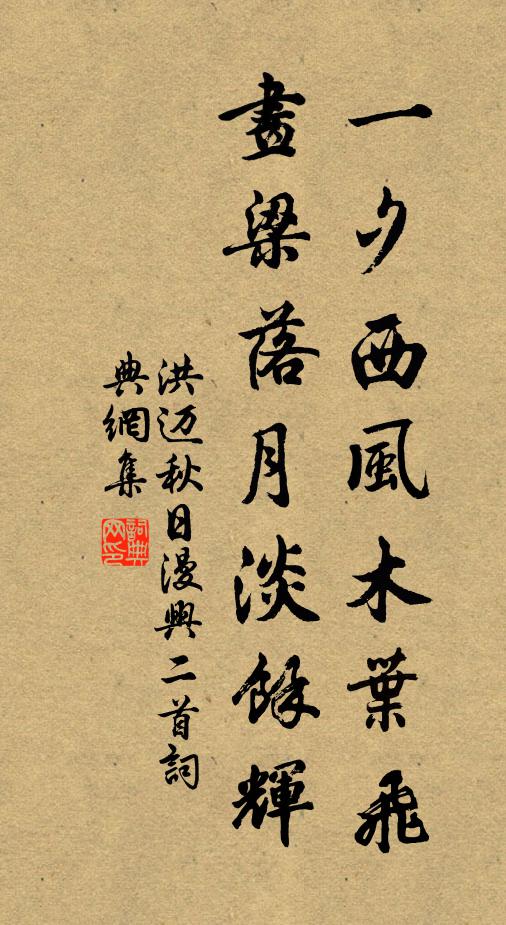 一夕西風木葉飛
畫梁落月淡餘輝
洪迈秋日漫興二首詞
典網集
詞典
网印